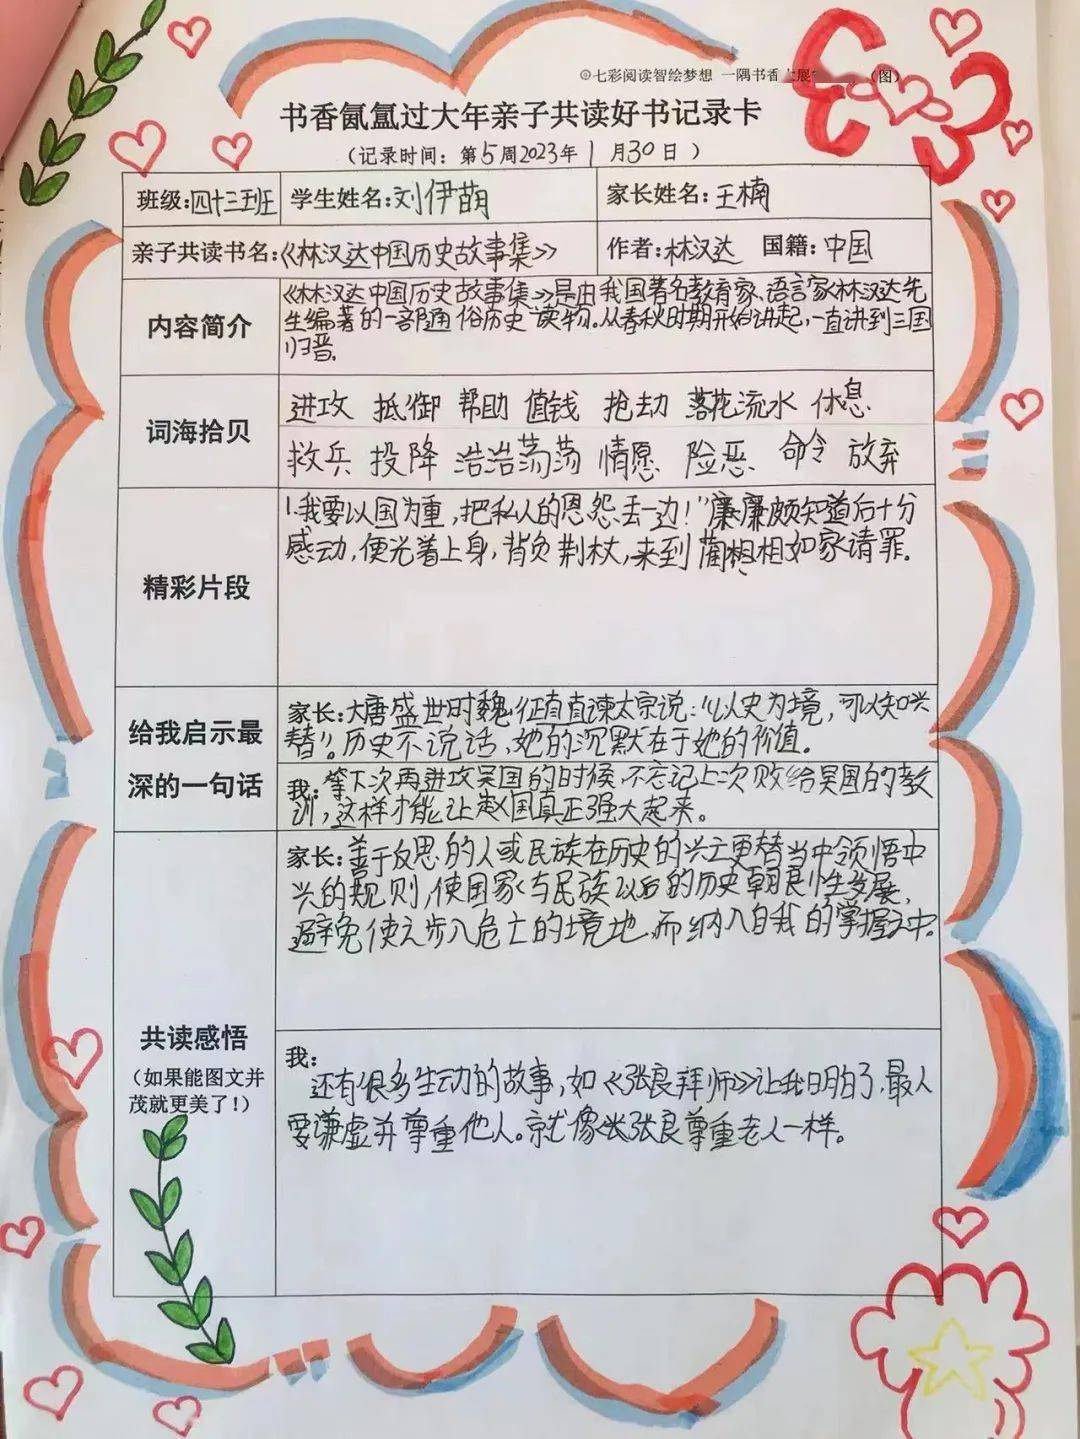 七彩阅读智绘梦想 一隅书香 展 (图)
书香氤氲过大年亲子共读好书记录卡
（记录时间：第5周2023年1月30日）
班级：四十三班 学生姓名：刘伊萌 家长姓名：王楠
亲子共读书名：《林汉达中国历史故事集》 作者：林汉达 国籍：中国
内容简介
《林汉达中国历史故事集》是由我国著名教育家、语言家林汉达先
生编著的一部通俗历史读物。从春秋时期开始讲起，一直讲到三国
归晋。
词海拾贝
进攻 抵御 帮助 值钱 抢劫 落花流水 休息
救兵 投降 浩浩荡荡 情愿 险恶 命令 放弃
精彩片段
1.我要以国为重，把私人的恩怨丢一边！”廉廉颇知道后十分
感动，便光着上身，背负荆杖，来到蔺相相如家请罪。
给我启示最
深的一句话
家长：大唐盛世时魏征直直谏太宗说：“以史为境，可以知兴
替”。历史不说话，她的沉默在于她的价值。
我：等下次再进攻吴国的时候，不忘记上次败给吴国的教
训，这样才能让赵国真正强大起来。
共读感悟
（如果能图文并
茂就更美了！）
家长：善于反思的人或民族在历史的兴亡更替当中领悟中
兴的规则，使国家与民族以后的历史朝良性发展，
避免使之步入危亡的境地，而纳入自我的掌握之中。
我：
还有很多生动的故事，如《张良拜师》让我明白了，最人
要谦虚并尊重他人。就像张良尊重老人一样。